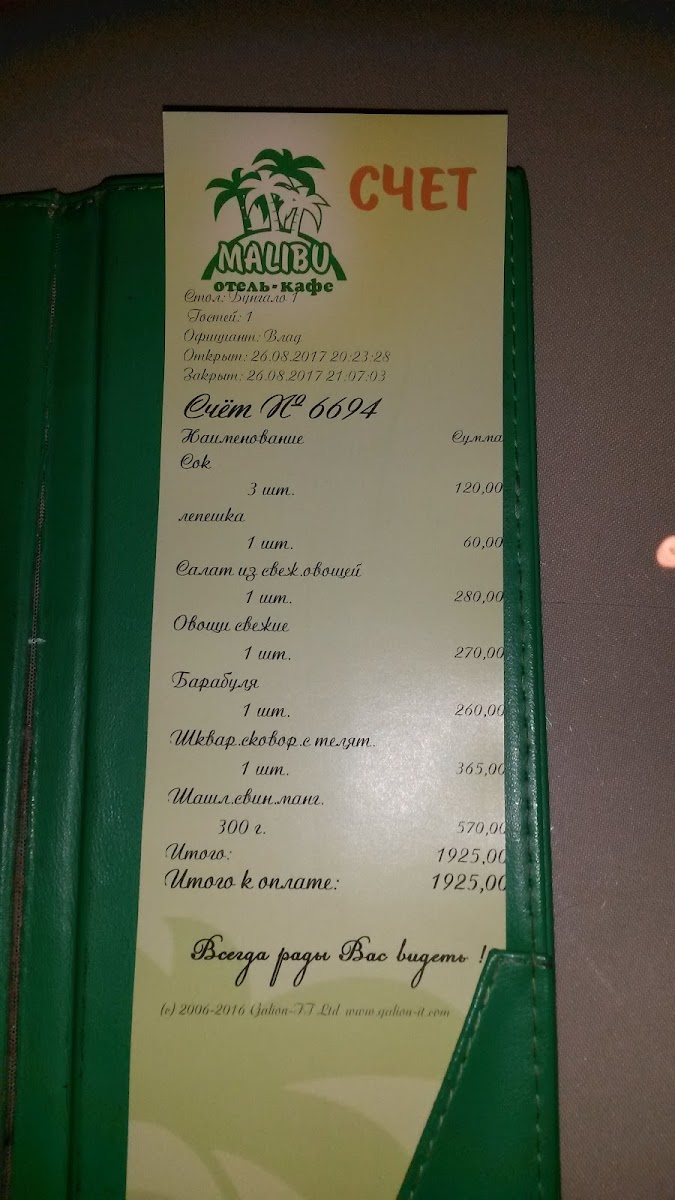 СЧЕТ
MALIBU
отель-кафе
Стол: Бунгало 1
Гостей: 1
Официант: Влад
Открыт: 26.08.2017 20:23:28
Закрыт: 26.08.2017 21:07:03
Счёт № 6694
Наименование Сумма
Сок
3 шт. 120,00
лепешка
1 шт. 60,00
Салат из свеж.овощей
1 шт. 280,00
Овощи свежие
1 шт. 270,00
Барабуля
1 шт. 260,00
Шквар.сковор.с телят.
1 шт. 365,00
Шашл.свин.манг.
300 г. 570,00
Итого: 1925,00
Итого к оплате: 1925,00
Всегда рады Вас видеть !
(c) 2006-2016 Galion-IT Ltd www.galion-it.com